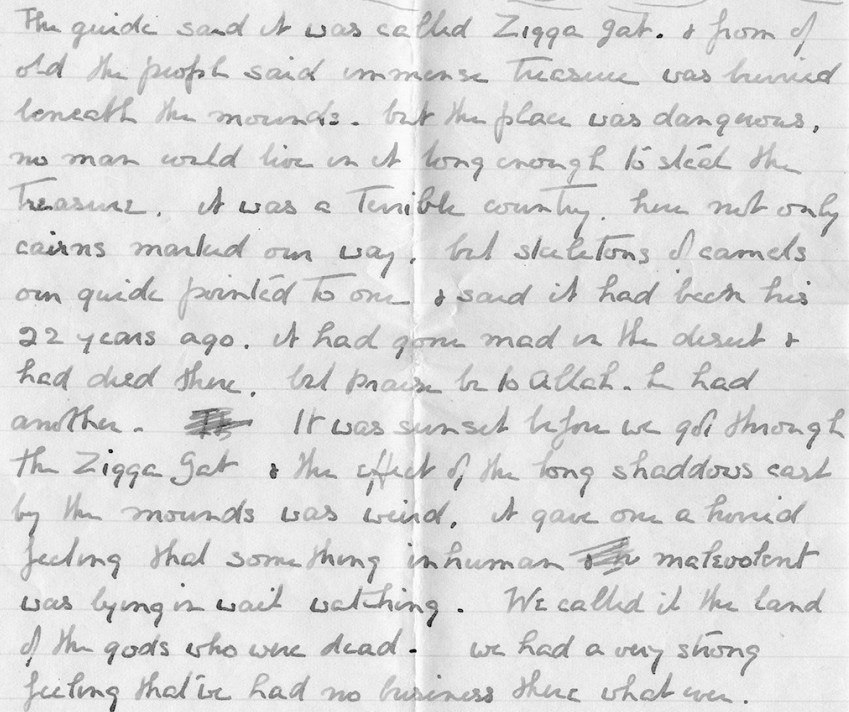 The guide said it was called Zigga Gat. & from of
old the people said immense treasure was burried
beneath the mounds. but the place was dangerous,
no man could live in it long enough to steal the
Treasure. it was a Terrible country. here not only
cairns marked our way, but skeletons of camels
our guide pointed to one & said it had been his
22 years ago. it had gone mad in the desert &
had died there. but praise be to Allah. he had
another. It was sunset before we got through
the Zigga Gat & the effect of the long shaddows cast
by the mounds was weird, it gave one a horrid
feeling that something inhuman malevolent
was lying in wait watching. We called it the land
of the gods who were dead. we had a very strong
feeling that we had no business there what ever.